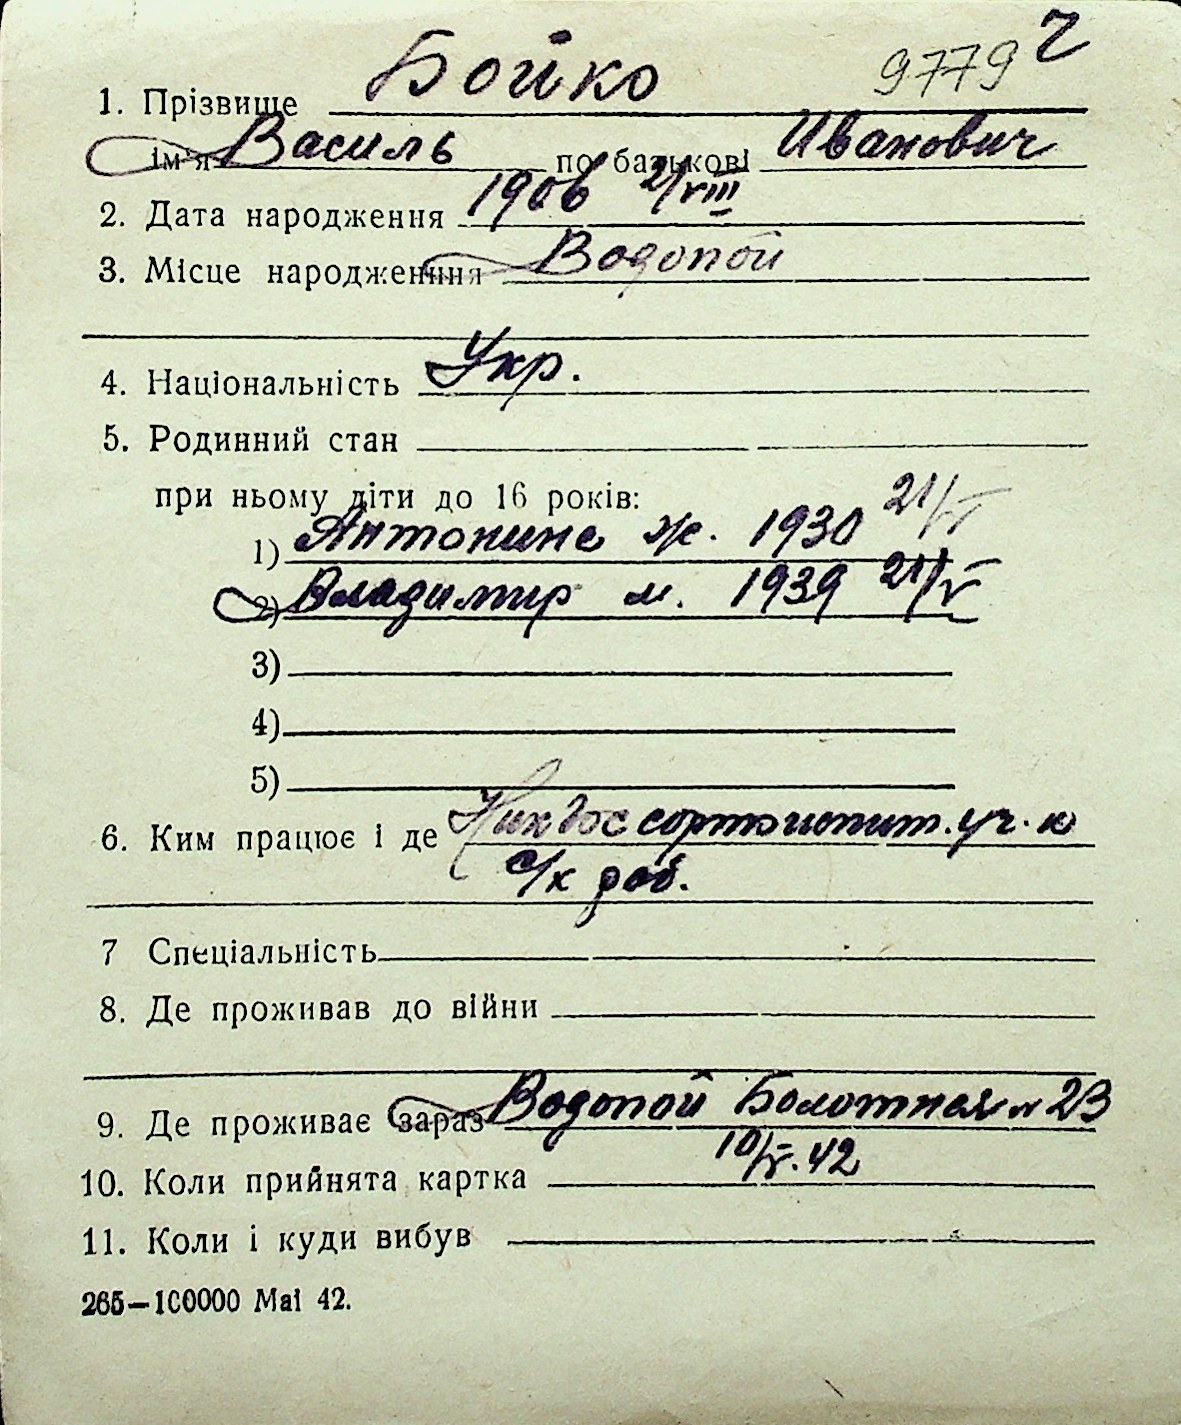 9779 Ч
1. Прізвище Бойко
ім'я Василь по батькові Иванович
2. Дата народження 1906 2/VIII
3. Місце народження Водопой
4. Національність Укр.
5. Родинний стан
при ньому діти до 16 років:
1) Антонина ж. 1930 21/V
2) Владимир м. 1939 21/V
3)
4)
5)
6. Ким працює і де Ник Гос сортоиспит. уч-к
с/х раб.
7 Спеціальність
8. Де проживав до війни
9. Де проживає зараз Водопой Болотная № 23
10. Коли прийнята картка 10/V.42
11. Коли і куди вибув
265—100000 Mai 42.